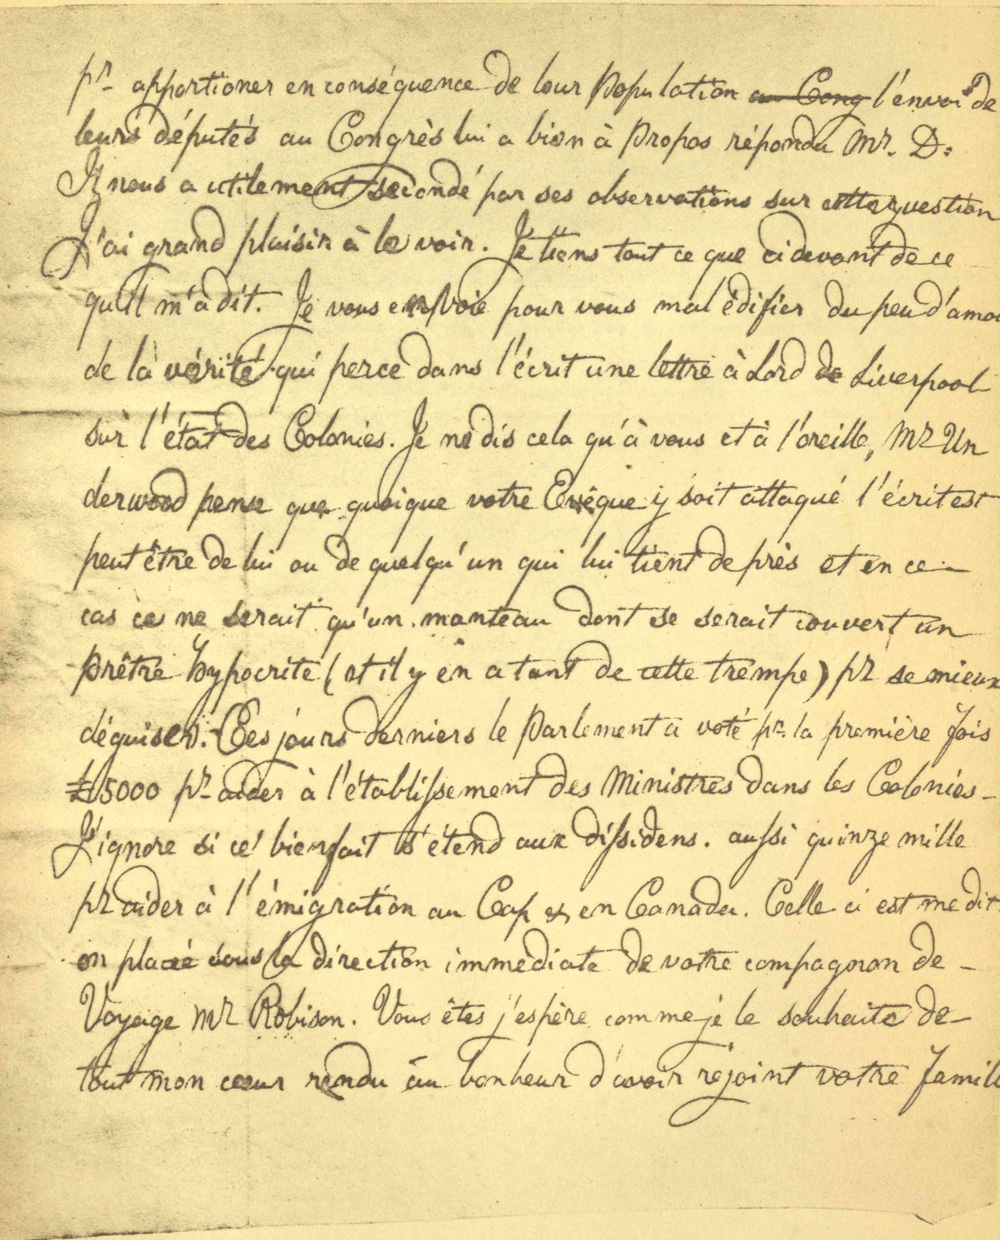 pr apportioner en conséquence de leur Population au Cong l'envoi de
leurs députés au Congrès lui a bien à Propos répondu Mr. D.
Il nous a utilement secondé par ses observations sur cette question
J'ai grand plaisir à le voir. Je tiens tout ce que ci devant de ce
qu'il m'a dit. Je vous envoie pour vous mal édifier du peu d'amou
de la vérité qui perce dans l'écrit une lettre à Lord de Liverpool
sur l'état des Colonies. Je ne dis cela qu'à vous et à l'oreille, Mr Un
derwood pense que quoique votre Evêque y soit attaqué l'écrit est
peut être de lui ou de quelqu'un qui lui tient de près et en ce
cas ce ne serait qu'un manteau dont se serait couvert un
prêtre hypocrite (et il y en a tant de cette trempe) pr se mieux
déguiser. Ces jours derniers le Parlement a voté pr. la première fois
£15000 pr aider à l'établissement des Ministres dans les Colonies_
J'ignore si ce bienfait s'étend aux dissidens. aussi quinze mille
pr aider à l'émigration au Cap et en Canada. Celle ci est me dit
on placée sous la direction immédiate de votre compagnon de_
Voyage Mr Robison. Vous êtes j'espère comme je le souhaite de_
tout mon cœur rendu au bonheur d'avoir rejoint votre famill